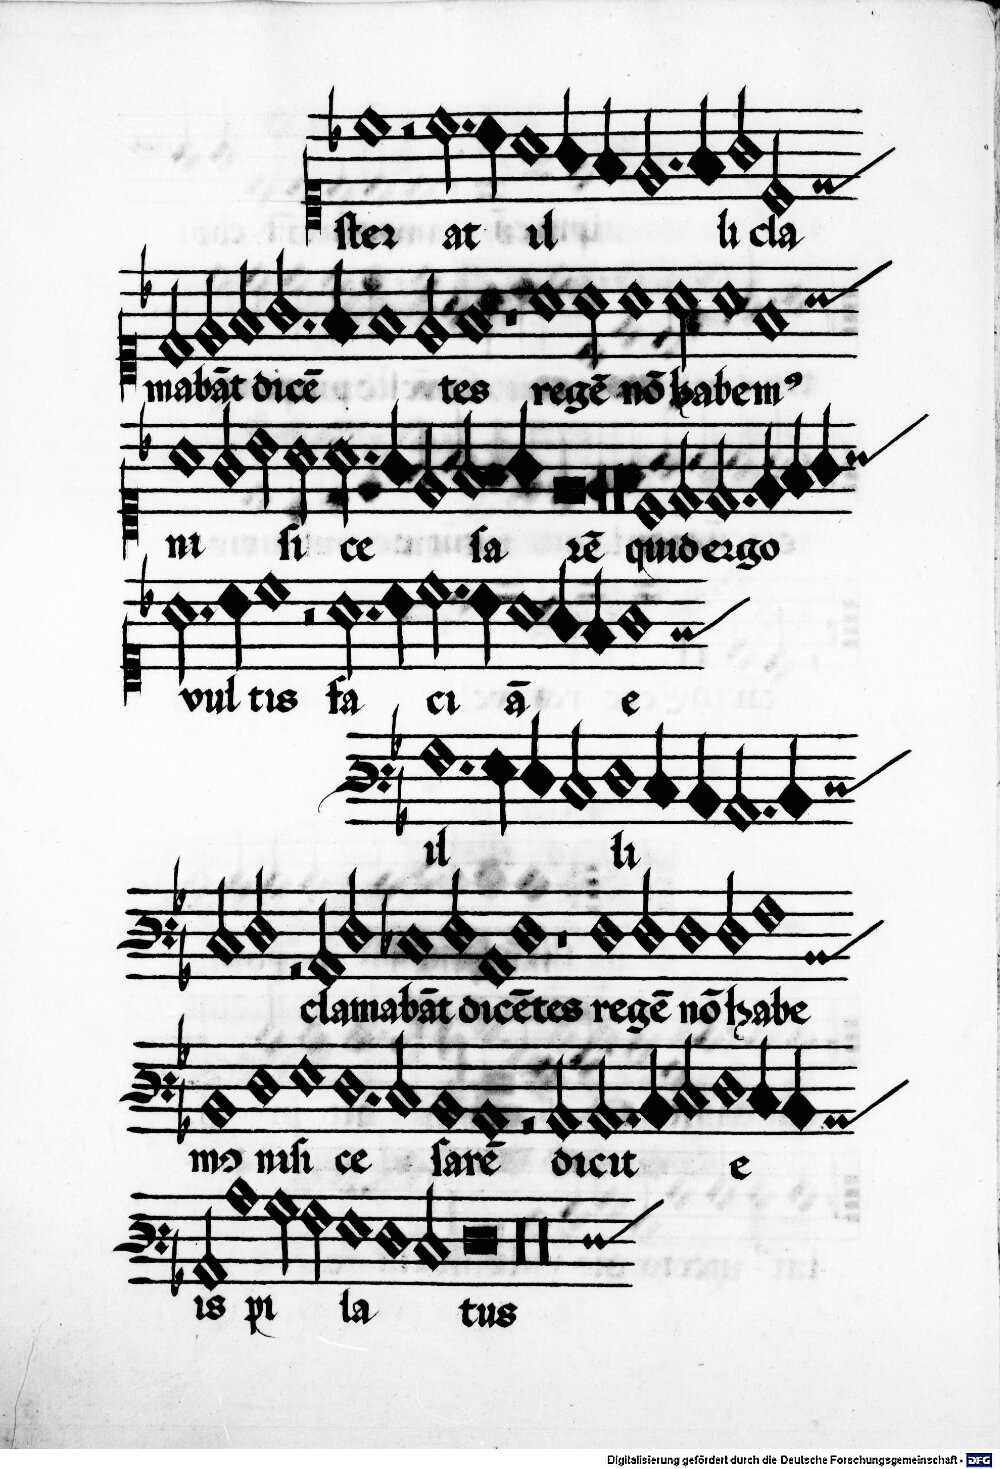 ster at il li cla
mabāt dicē tes regē nō habemꝰ
ni si ce sa rē quid ergo
vul tis fa ci ā e
il li
clamabāt dicētes regē nō habe
mꝰ nisi ce sarē dicit e
is pi la tus
Digitalisierung gefördert durch die Deutsche Forschungsgemeinschaft - DFG